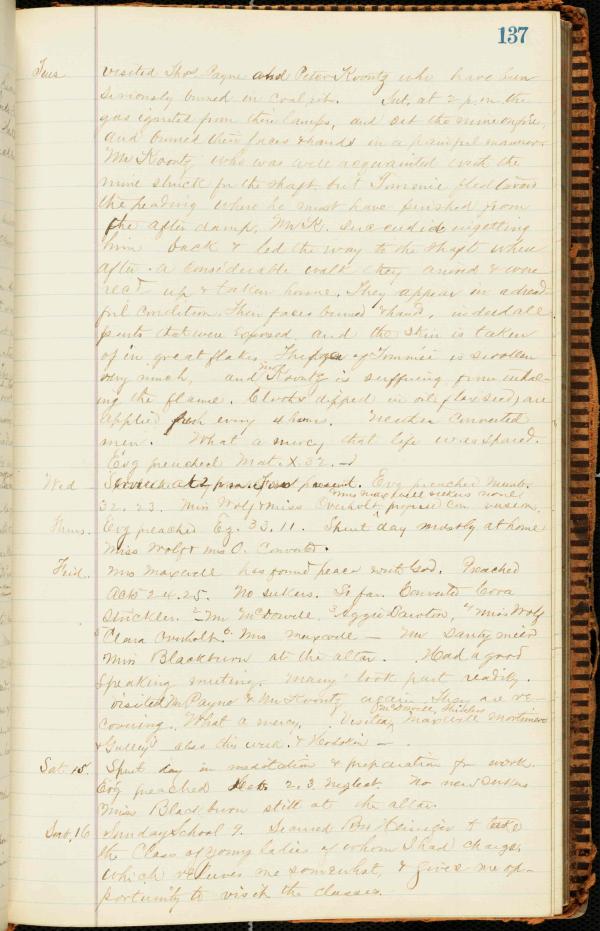 137
Tues visited Thos. Payne and Peter Koontz who have been
seriously burned in coal pit. Sat, at 2 p.m. the
gas ignited from their lamps, and set the mine on fire,
and burned their faces & hands in a painful manner.
Mr Koontz who was well acquainted with the
mine struck for the shaft but Tommie fled toward
the heading where he must have perished from
the after damp. Mr K. succeeded in getting
him back & led the way to the shaft where
after a considerable walk they arrived & were
recd up & taken home. They appear in a dread-
ful condition. Their faces burned & hands, indeed all
parts that were exposed, and the skin is taken
off in great flakes. The face of Tommie is swollen
very much, and Mr Koontz is suffering from inhal-
ing the flame. Cloths dipped in oil (flax seed) are
applied fresh every 4 hours. Neither converted
men. What a mercy that life was spared.
Evg preached Mat. X. 32.
Wed Service at 2 p.m. Few present. Evg preached Numb.
Mrs Maxwell seekers none
32. 23. Miss Wolf & Miss Overholt professed conversion.
Thurs. Evg preached Ez. 33. 11. Spent day mostly at home
Miss Wolf & Miss O. Converted.
Frid. Mrs Maxwell has found peace with God. Preached
Acts 24. 25. No seekers. So far Converted Cora
Strickler. 2 Mr McDowell 3 Aggie Dawton, 4 Miss Wolf
5 Clara Overholt 6. Mrs Maxwell — Mr
Miss Blackburn at the altar. Had a good
speaking meeting. Many took part readily.
Visited Mr Payne & Mr Koontz again. They are re-
McDowell Strickler
covering. What a mercy. Visited Maxwell Mortimore
& also this week. &
Sat. 15. Spent day in meditation & preparation for work.
Evg preached Heb. 2. 3. Neglect. No new seekers
Miss Blackburn still at the altar.
Sab. 16 Sunday School 9. Secured Bro to take
the Class of young ladies of whom I had charge,
which relieves me somewhat, & gives me op-
portunity to visit the classes.